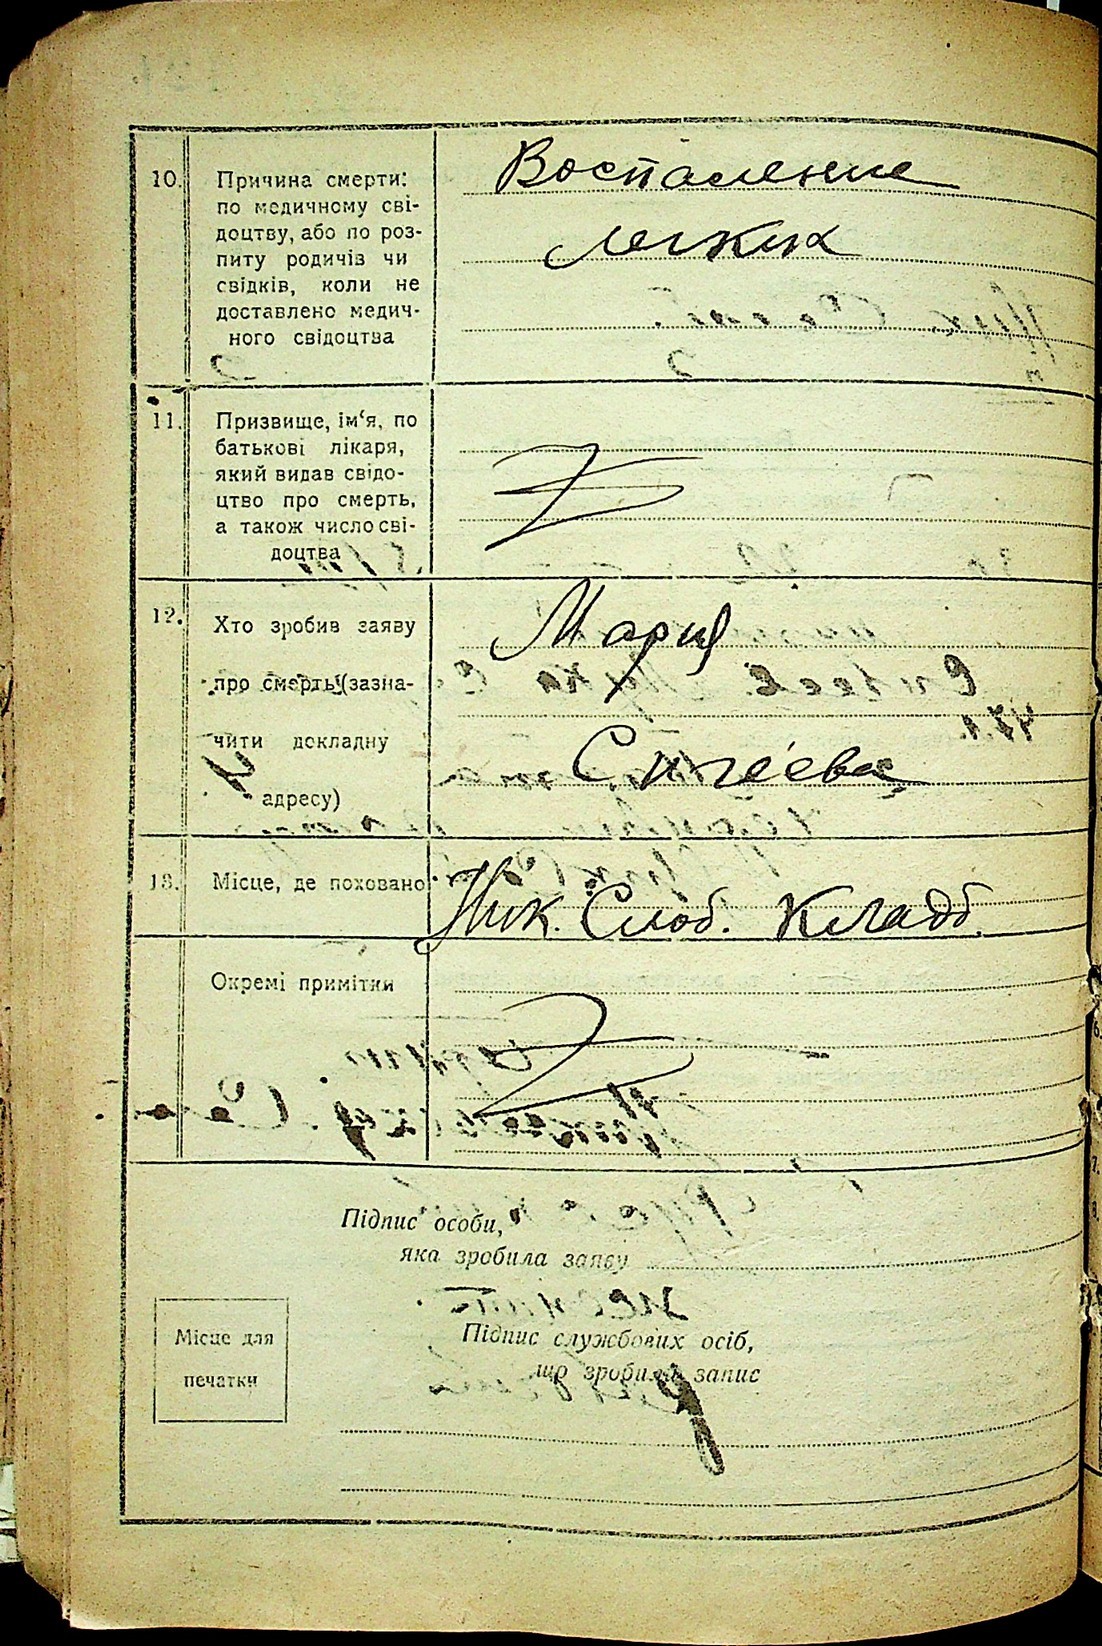 10. Причина смерти:
по медичному сві-
доцтву, або по роз-
питу родичів чи
свідків, коли не
доставлено медич-
ного свідоцтва
Воспаление
легких
11. Призвище, ім'я, по
батькові лікаря,
який видав свідо-
цтво про смерть,
а також число сві-
доцтва
12. Хто зробив заяву
про смерть (зазна-
чити докладну
адресу)
Мария
Сигеева
13. Місце, де поховано
Ник. Слоб. Кладб.
Окремі примітки
Підпис особи,
яка зробила заяву
Місце для
печатки
Підпис службових осіб,
що зробили запис